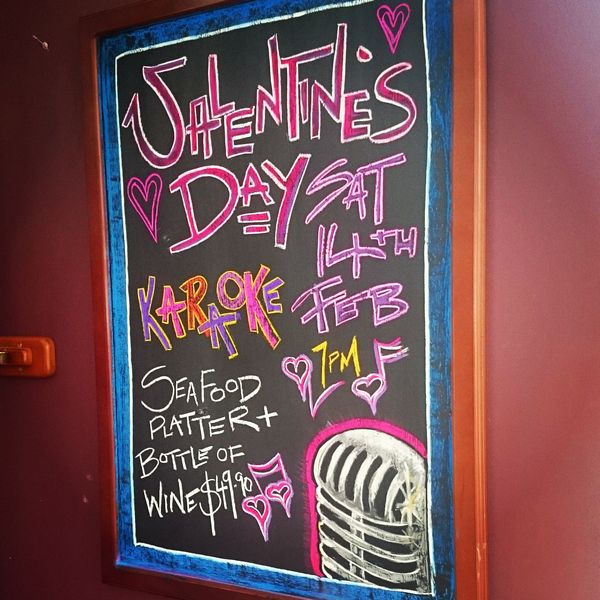 VALENTINE'S
DAY
SAT
14TH
FEB
7PM
KARAOKE
SEAFOOD
PLATTER +
BOTTLE OF
WINE $49.90